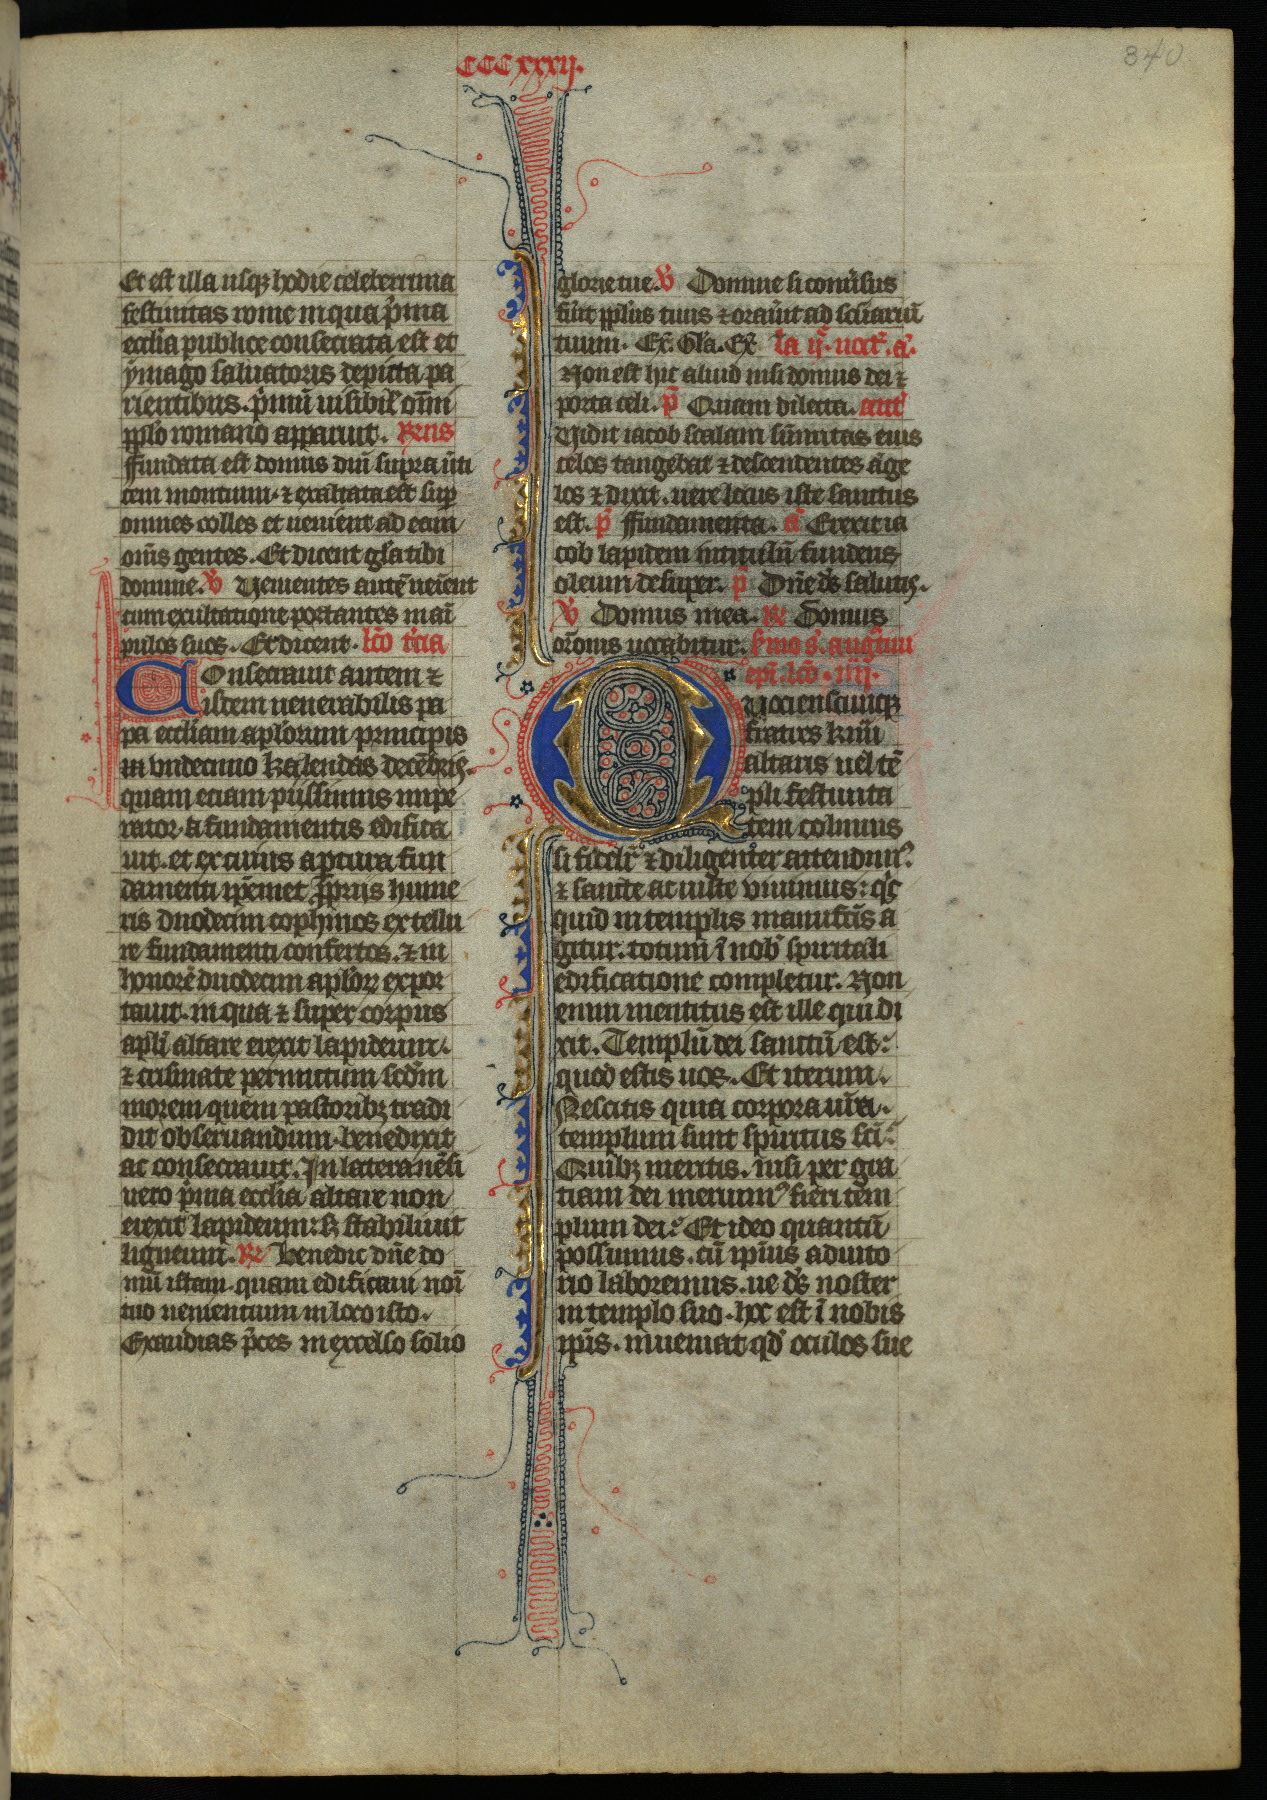 CCCxxxij.
340
Et est illa usq₃ hodie celeberrima
festiuitas rome in qua p̓ma
ecclīa publice consecrata est et
ymago saluatoris depicta pa
rientibus. p̓mū uisibil' om̄i
pp̄lo romano apparuit. R̷ens
ffundata est domus dn̄i supra ūti
cem montium. ⁊ exaltata est sup̲
omnes colles et uenient ad eam
om̄s gentes. Et dicent gl̄a tibi
domine. V̷ Uenientes autē ueiēnt
cum exultatione portantes mai̅
pulos suos. Et dicent. lc̄o t̓cia
Consecrauit autem ⁊
istem uenerabilis pa
pa eccl̄iam apl̄orum principis
in vndecimo kalendas decēbris.
quam etiam piissimus impe
rator. a fundamentis edifica
uit. et ex cuius aptura fun
damenti ip̄emet ꝓpriis hume
ris duodecim cophinos ex tellu
re fundamenti confertos. ⁊ in
honorē duodecim apl̄oꝝ expor
tauit. in qua ⁊ super corpus
apl̄i altare erexit lapideum.
⁊ crismate perunctum scd̄m
morem quem pastorib₃ tradi
dit obseruandum. benedixit
ac consecrauit. In lateranēsi
uero p̓ma eccl̄ia altare non
erexit lapideum: s₃ stabiliuit
ligneum. R̷ Benedic dn̄e do
mū istam. quam edificaui noī
tuo uenientium in loco isto.
Exaudias p̄ces in excelso solio
glorie tue. V̷ Domine si conu̓sus
fūit ppl̄us tuus ⁊ orau̓it ad sc̄uariū
tuum. Ex̄. Gl̄a. Ex̄ In ij. noct̓. a̓.
Non est hic aliud nisi domus dei ⁊
porta celi. p̄ Quam dilecta. ant̓
Uidit iacob scalam sūmitas eius
celos tangebat ⁊ descendentes āge
los ⁊ dixit. uere locus iste sanctus
est. p̄ ffundamenta. a̓ Erexit ia
cob lapidem in titulū fundens
oleum desuper. p̄ Dn̄e ds̄ salutis.
V̷ Domus mea. R̷ Domus
or̄onis uocabitur. s̓mo s̓. augustini
ep̄i. lc̄o. iiij.
Quocienscūq₃
fratres kr̄mi
altaris uel tē
pli festiuita
tem colimus
si fideli⁊ ⁊ diligenter attendim᷒
⁊ sancte ac iuste viuimus: q̓c
quid in templis manufc̄is a
gitur. totum ī nob̄ spiritali
edificatione completur. Non
enim mentitus est ille qui di
xit. Templū dei sanctū est:
quod estis uos. Et iterum.
Nescitis quia corpora ūra.
templum sunt spiritus sc̄i:
Quib₃ meritis. nisi per gra
tiam dei meruim᷒ fieri tem
plum dei: Et ideo quantū
possumus. cū ip̄ius aduito
rio laboremus. ne ds̄ noster
in templo suo. hoc est ī nobis
ip̄is. inueniat qd̓ oculos sue